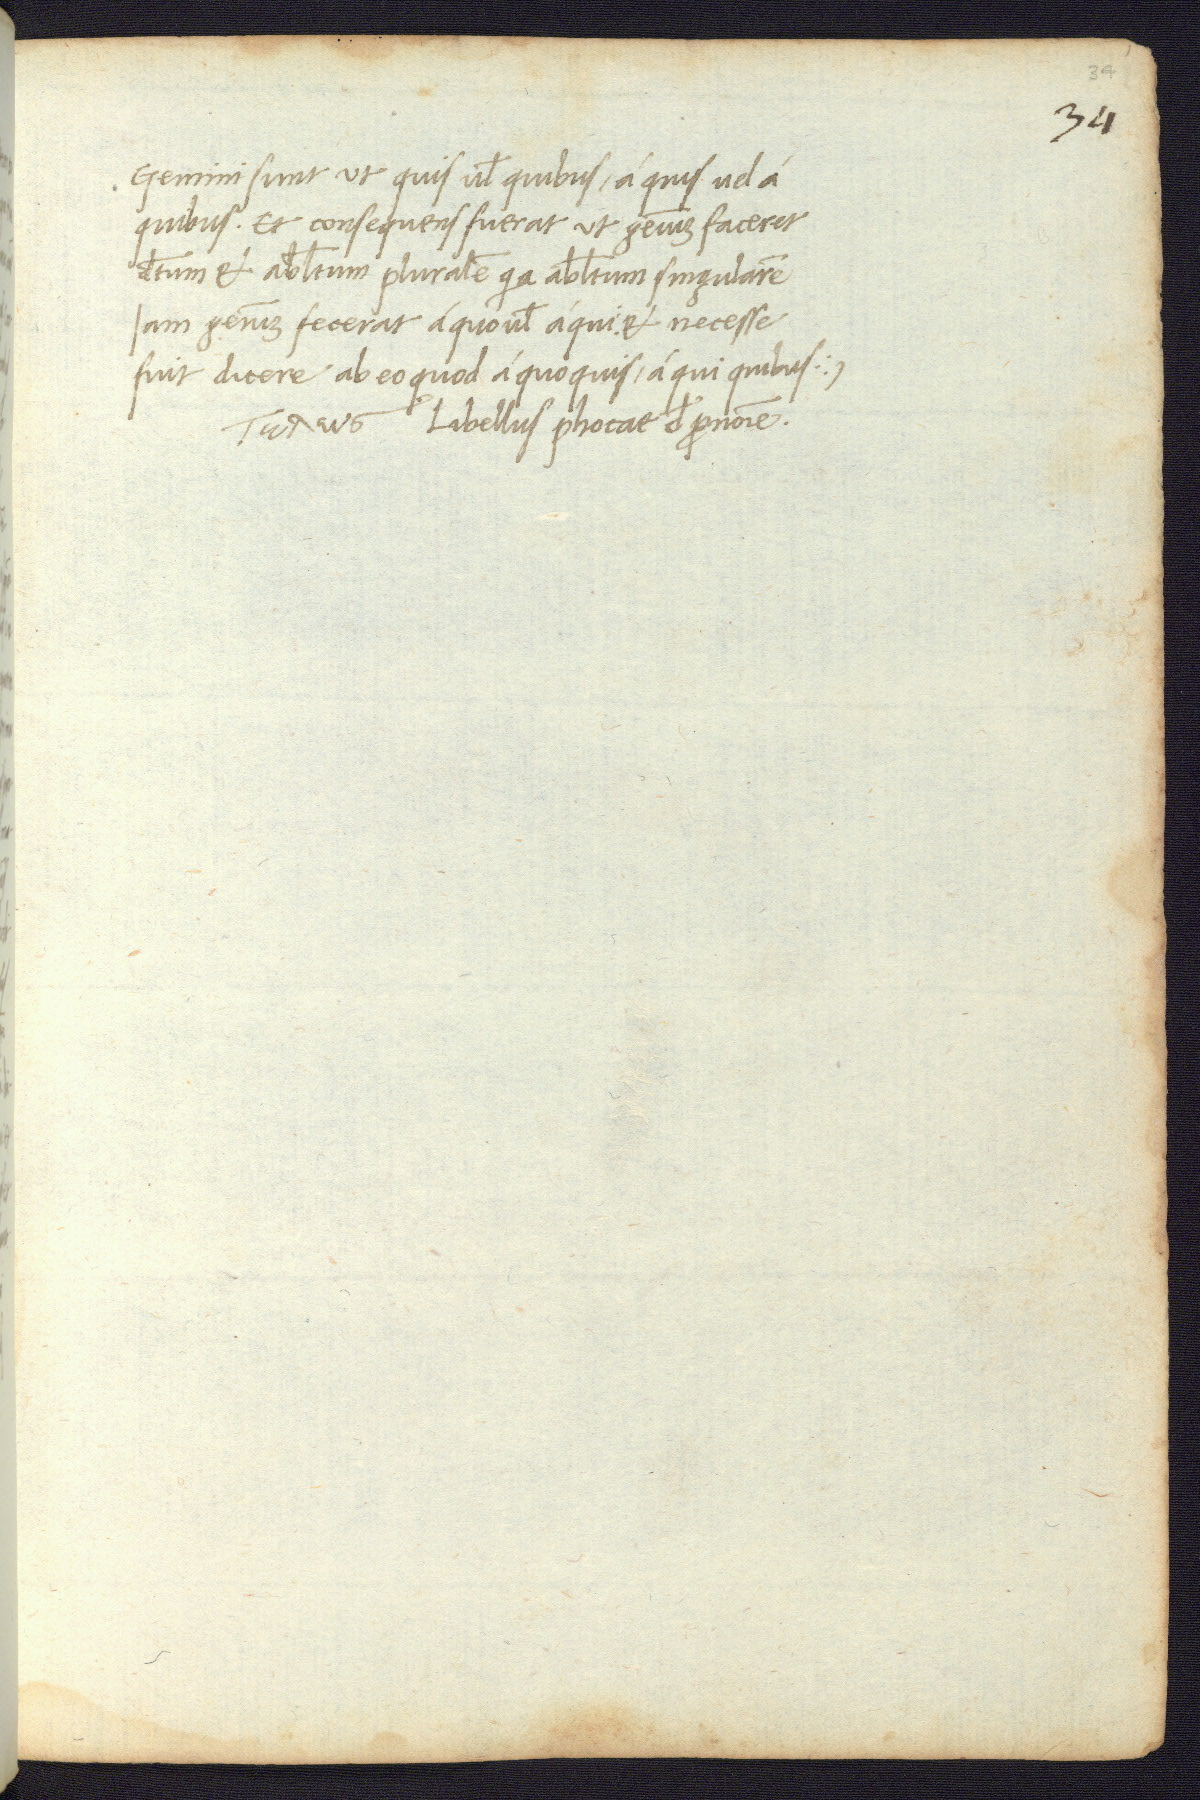 34
34
Gemini sunt ut quis ul̄ quibus, á quis uel á
quibus. Et consequens fuerat ut genĩũ faceret
d̄tum & abl̄tum pluralē qa abl̄tum singularē
Iam genĩũ fecerat á quo ul̄ á qui. & necesse
fuit dicere ab eo quod á quo quis, á qui quibus
Libellus phocae d̄ pnoīe.